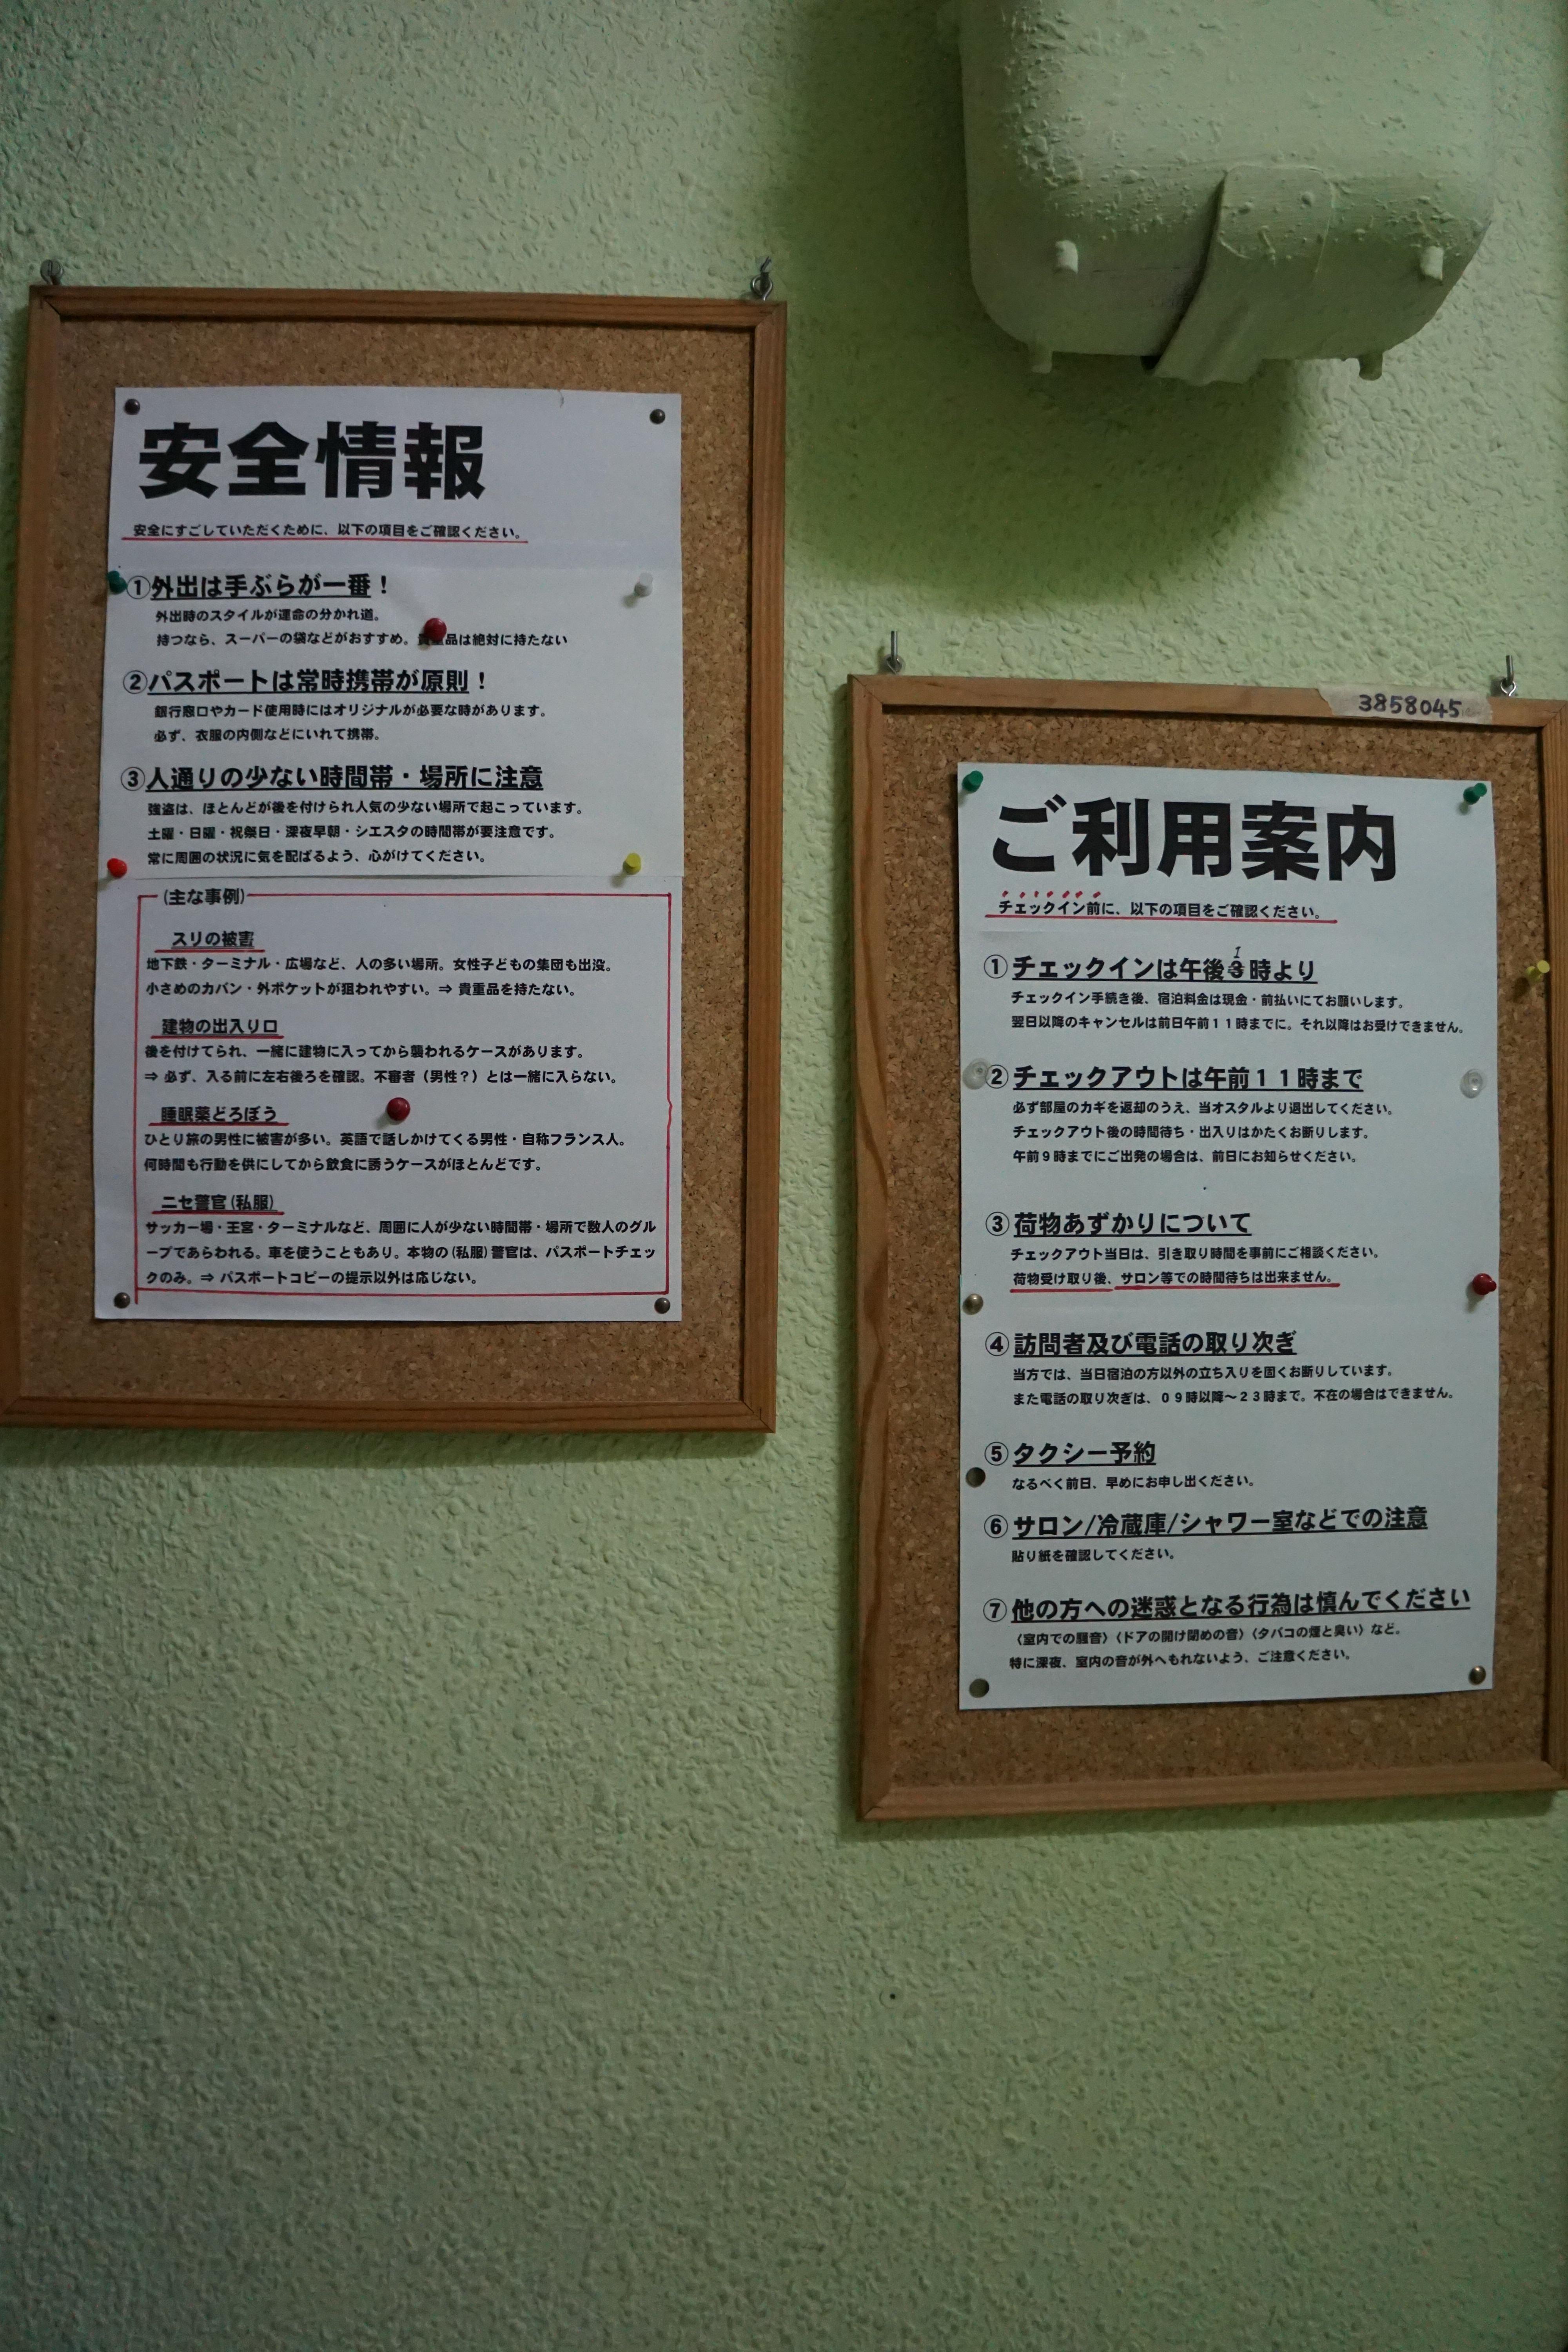 安全情報
安全にすごしていただくために、以下の項目をご確認ください。
①外出は手ぶらが一番！
外出時のスタイルが運命の分かれ道。
持つなら、スーパーの袋などがおすすめ。貴重品は絶対に持たない
②パスポートは常時携帯が原則！
銀行窓口やカード使用時にはオリジナルが必要な時があります。
必ず、衣服の内側などにいれて携帯。
③人通りの少ない時間帯・場所に注意
強盗は、ほとんどが後を付けられ人気の少ない場所で起こっています。
土曜・日曜・祝祭日・深夜早朝・シエスタの時間帯が要注意です。
常に周囲の状況に気を配ばるよう、心がけてください。
(主な事例)
スリの被害
地下鉄・ターミナル・広場など、人の多い場所。女性子どもの集団も出没。
小さめのカバン・外ポケットが狙われやすい。⇒ 貴重品を持たない。
建物の出入り口
後を付けてられ、一緒に建物に入ってから襲われるケースがあります。
⇒ 必ず、入る前に左右後ろを確認。不審者（男性？）とは一緒に入らない。
睡眠薬どろぼう
ひとり旅の男性に被害が多い。英語で話しかけてくる男性・自称フランス人。
何時間も行動を供にしてから飲食に誘うケースがほとんどです。
ニセ警官(私服)
サッカー場・王宮・ターミナルなど、周囲に人が少ない時間帯・場所で数人のグル
ープであらわれる。車を使うこともあり。本物の(私服)警官は、パスポートチェッ
クのみ。⇒ パスポートコピーの提示以外は応じない。
3858045
ご利用案内
チェックイン前に、以下の項目をご確認ください。
1
①チェックインは午後3時より
チェックイン手続き後、宿泊料金は現金・前払いにてお願いします。
翌日以降のキャンセルは前日午前１１時までに。それ以降はお受けできません。
②チェックアウトは午前１１時まで
必ず部屋のカギを返却のうえ、当オスタルより退出してください。
チェックアウト後の時間待ち・出入りはかたくお断りします。
午前９時までにご出発の場合は、前日にお知らせください。
③荷物あずかりについて
チェックアウト当日は、引き取り時間を事前にご相談ください。
荷物受け取り後、サロン等での時間待ちは出来ません。
④訪問者及び電話の取り次ぎ
当方では、当日宿泊の方以外の立ち入りを固くお断りしています。
また電話の取り次ぎは、０９時以降～２３時まで。不在の場合はできません。
⑤タクシー予約
なるべく前日、早めにお申し出ください。
⑥サロン/冷蔵庫/シャワー室などでの注意
貼り紙を確認してください。
⑦他の方への迷惑となる行為は慎んでください
〈室内での騒音〉〈ドアの開け閉めの音〉〈タバコの煙と臭い〉など。
特に深夜、室内の音が外へもれないよう、ご注意ください。